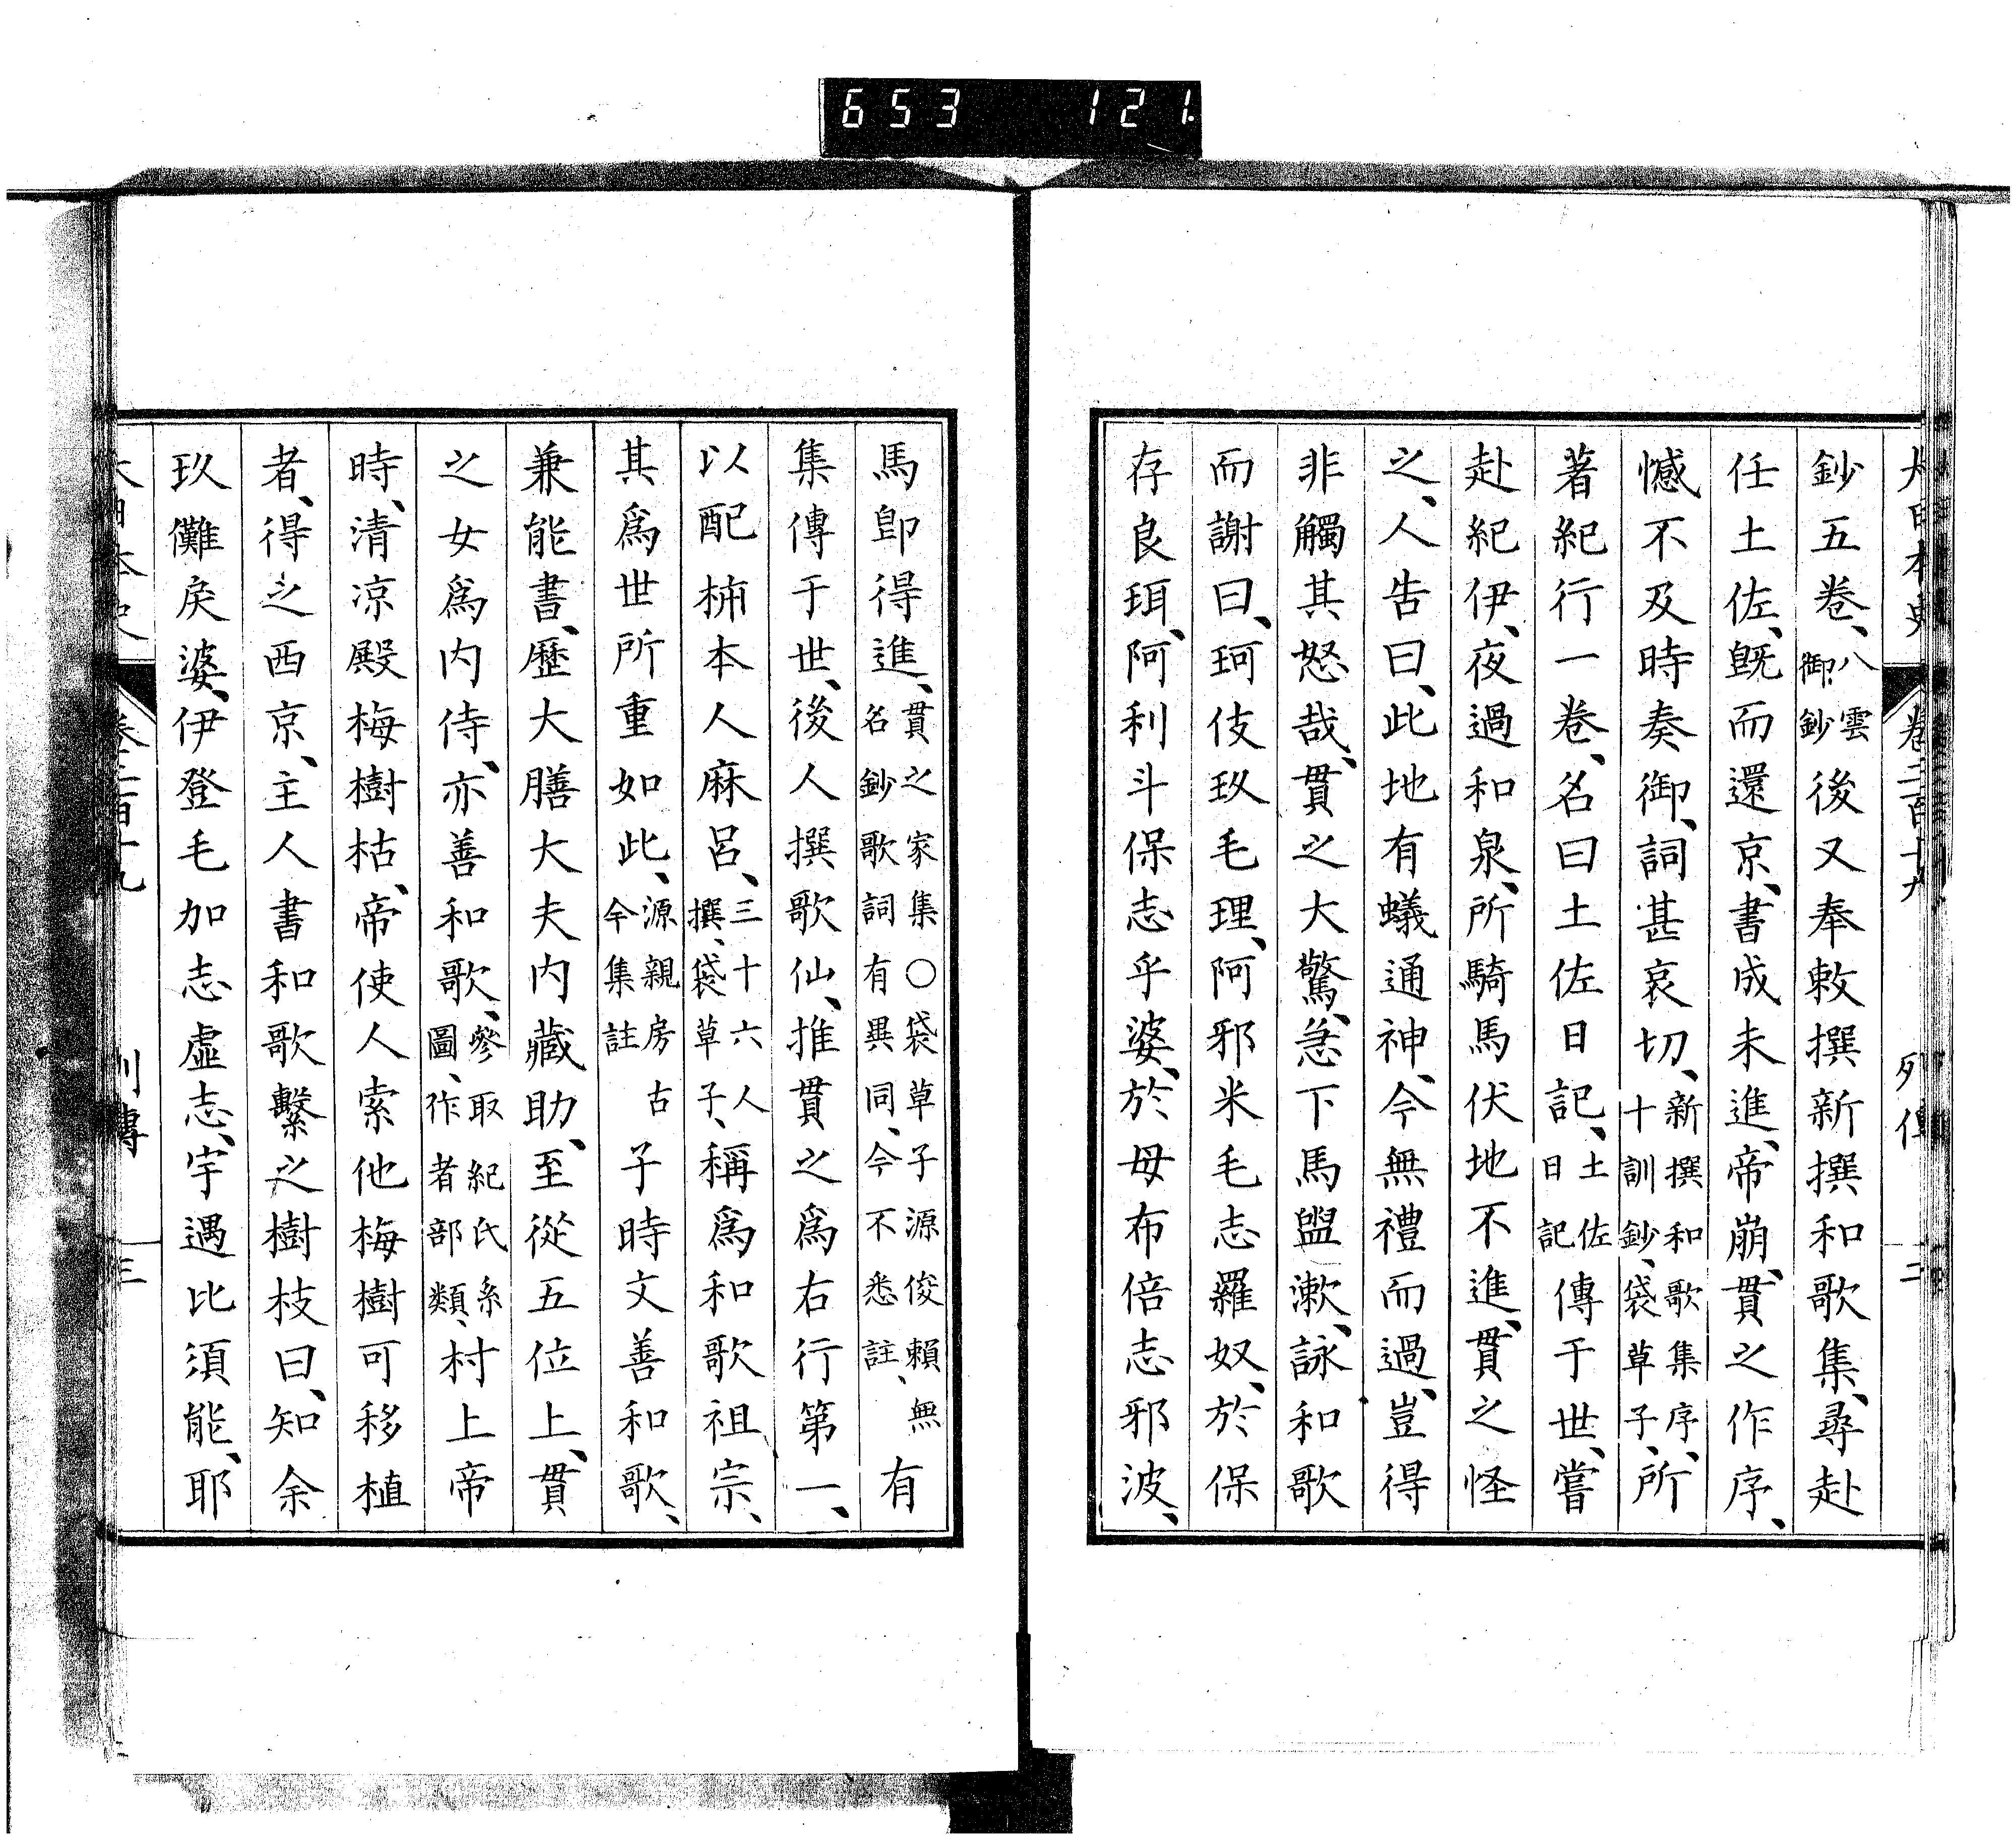 653 121.
大日本史 卷二百十九 列傳 二
鈔五卷、八雲御鈔後又奉敕撰新撰和歌集、尋赴
任土佐、既而還京、書成未進、帝崩、貫之作序、
憾不及時奏御、詞甚哀切、新撰和歌集序、十訓鈔、袋草子、所
著紀行一卷、名曰土佐日記、土佐日記傳于世、嘗
赴紀伊、夜過和泉、所騎馬伏地不進、貫之怪
之、人告曰、此地有蟻通神、今無禮而過、豈得
非觸其怒哉、貫之大驚、急下馬盥漱、詠和歌
而謝曰、珂伎玖毛理、阿邪米毛志羅奴、於保
存良珥、阿利斗保志乎婆、於毋布倍志邪波、
馬卽得進、貫之家集○袋草子源俊賴無名鈔歌詞有異同、今不悉註、有
集傳于世、後人撰歌仙、推貫之爲右行第一、
以配柿本人麻呂、三十六人撰、袋草子、稱爲和歌祖宗、
其爲世所重如此、源親房古今集註子時文善和歌、
兼能書、歷大膳大夫内藏助、至從五位上、貫
之女爲内侍、亦善和歌、參取紀氏系圖、作者部類、村上帝
時、清凉殿梅樹枯、帝使人索他梅樹可移植
者、得之西京、主人書和歌繫之樹枝曰、知余
玖儺戾婆、伊登毛加志虛志、宇遇比須能、耶
大日本史 卷二百十九 列傳 三